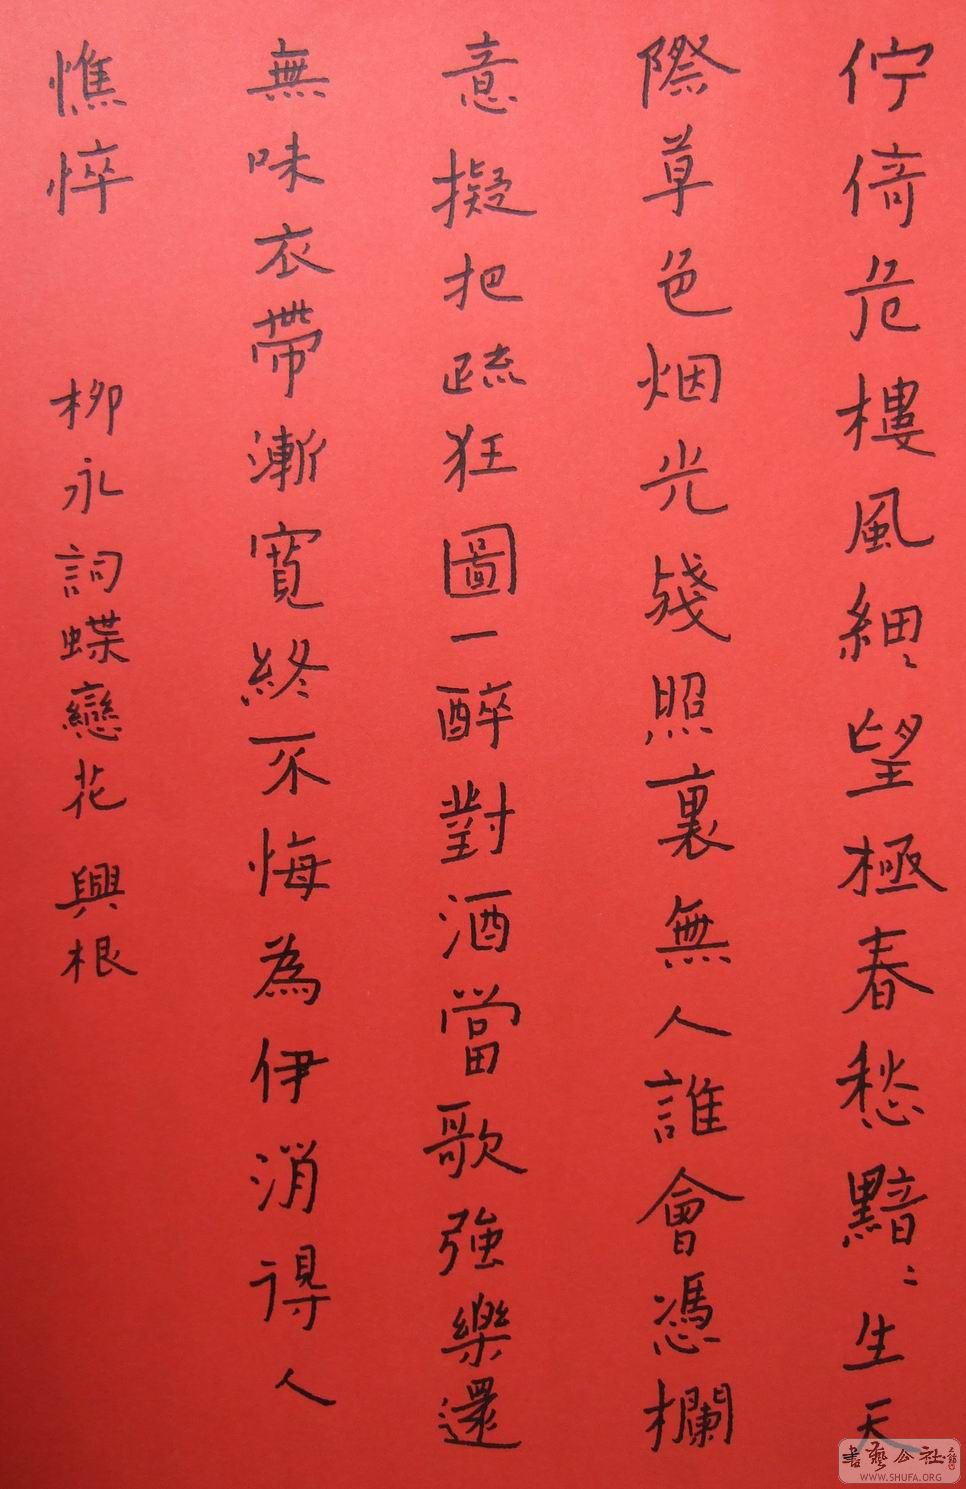 佇倚危樓風細〻望極春愁黯〻生天
際草色烟光殘照裏無人誰會憑欄
意擬把疏狂圖一醉對酒當歌強樂還
無味衣帶漸寬終不悔為伊消得人
憔悴 柳永詞蝶戀花 興根
書藝公社
WWW.SHUFA.ORG